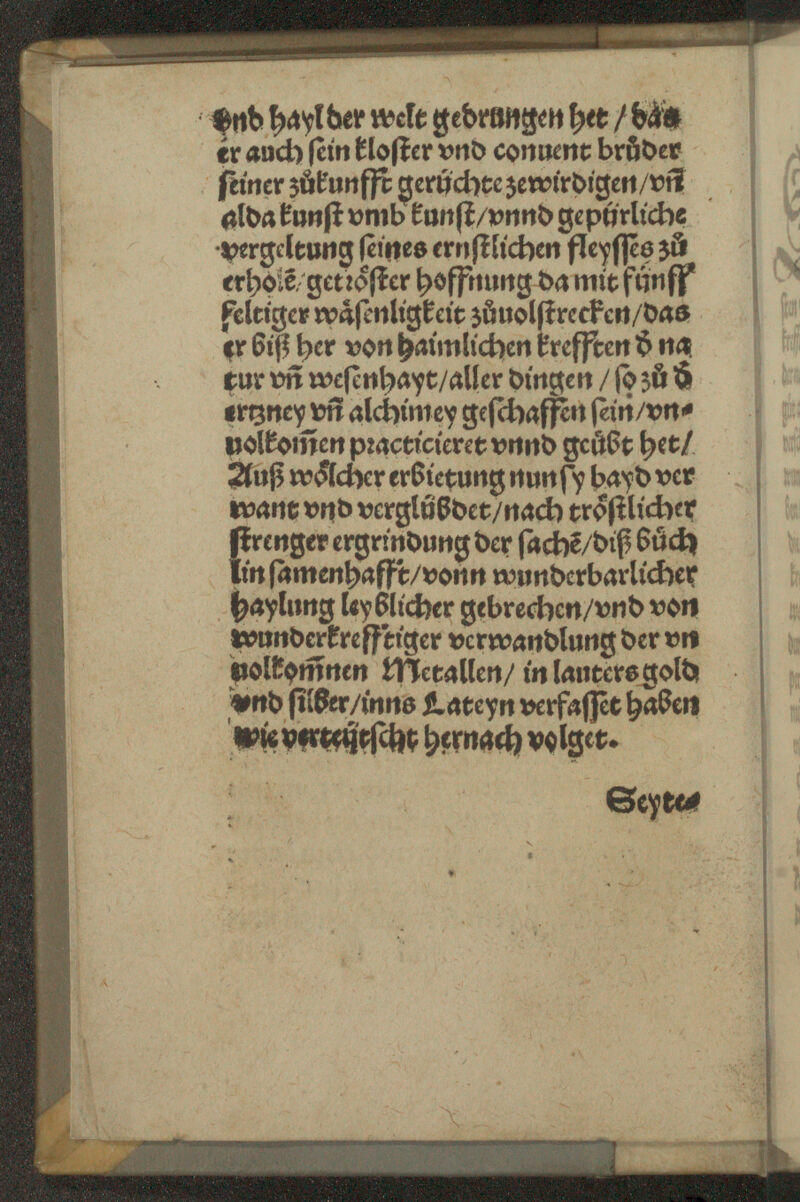 vnd hayl der welt gedrungen het / das
er auch sein kloster vnd conuent brůder
seiner zůkunfft gerüchte zewirdigen/vñ
alda kunst vmb kunst/vnnd gepürliche
vergeltung seines ernstlichen fleysses zů
erholē/getröster hoffnung damit fünff
feltiger wäsenligkeit zůuolstrecken/das
er biß her von haimlichen krefften d̕ na
tur vñ wesenhayt/aller dingen / so zů d̕
ertzney vñ alchimey geschaffen sein/vn⸗
uolkom̃en practicieret vnnd geübt het/
Auß wölcher erbietung nun sy bayd ver
want vnd verglübdet/nach tröstlicher
strenger ergrindung der sachē/diß bůch
lin samenhafft/vonn wunderbarlicher
haylung leyblicher gebrechen/vnd von
wunderkrefftiger verwandlung der vn
uolkom̃nen Metallen/ in lauters gold
vnd silber/inns Lateyn verfasset haben
wie verteütscht hernach volget.
Seyte⸗